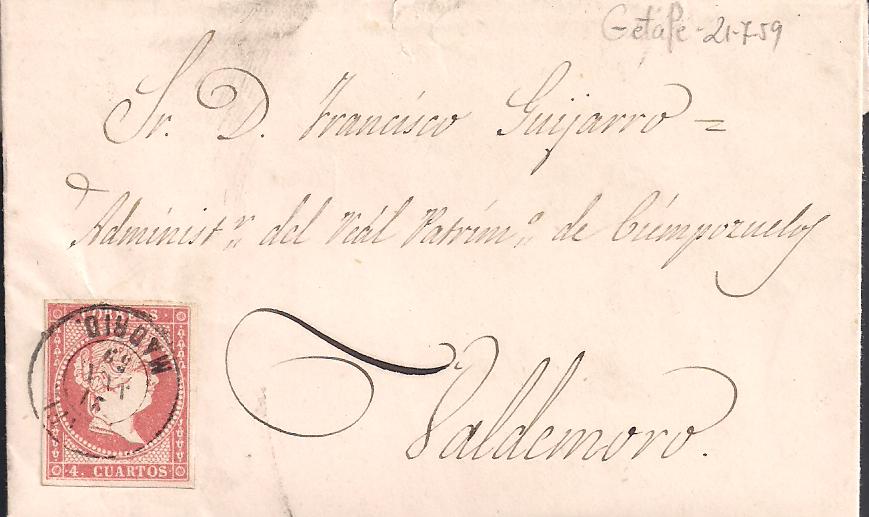 Getafe - 21-7-59
Sr. D. Francisco Guijarro =
Administ.r del Real Patrim.o de Ciempozuelos
Valdemoro.
CORREOS
MADRID.
59
4. CUARTOS